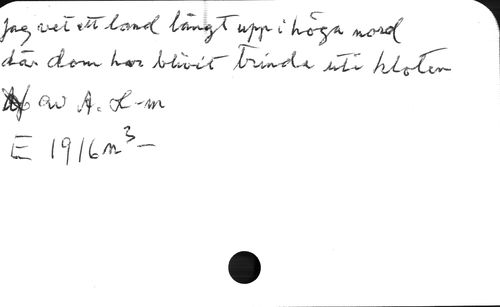 Jag vet ett land långt upp i höga nord
där dom har blivit trinda uti kloten
av A. L-m
E 1916 n³ -